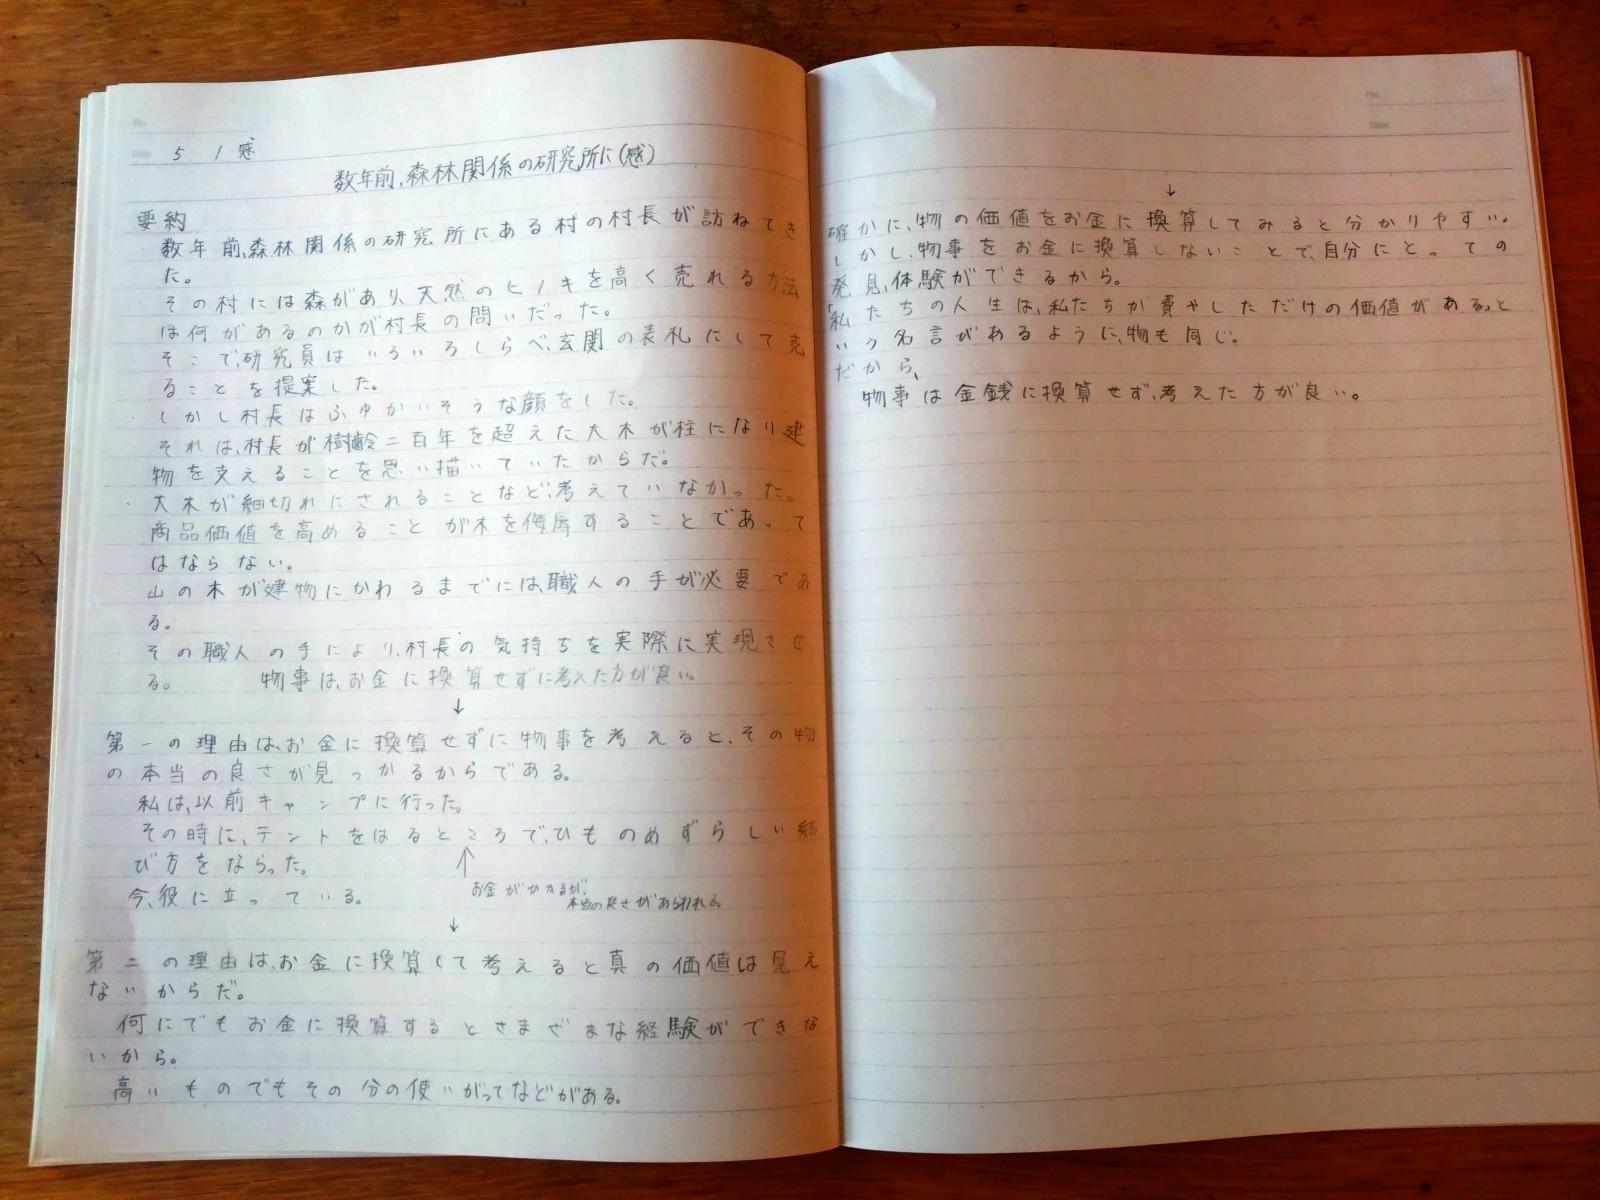 5 1 感
数年前、森林関係の研究所に(感)
要約
数年前、森林関係の研究所にある村の村長が訪ねてき
た。
その村には森があり、天然のヒノキを高く売れる方法
は何があるのかが村長の問いだった。
そこで、研究員はいろいろしらべ、玄関の表札にして売
ることを提案した。
しかし村長はふゆかいそうな顔をした。
それは、村長が樹齢二百年を超えた大木が柱になり建
物を支えることを思い描いていたからだ。
大木が細切れにされることなど、考えていなかった。
商品価値を高めることが木を侮辱することであって
はならない。
山の木が建物にかわるまでには、職人の手が必要であ
る。
その職人の手により、村長の気持ちを実際に実現させ
る。 物事は、お金に換算せずに考えた方が良い。
↓
第一の理由は、お金に換算せずに物事を考えると、その物
の本当の良さが見つかるからである。
私は、以前キャンプに行った。
その時に、テントをはるところで、ひものめずらしい結
び方をならった。
↑
お金がかかるが、
本当の良さがあらわれる。
今、役に立っている。
↓
第二の理由は、お金に換算して考えると真の価値は見え
ないからだ。
何にでもお金に換算するとさまざまな経験ができな
いから。
高いものでもその分の使いがってなどがある。
No.
Date
↓
確かに、物の価値をお金に換算してみると分かりやすい。
しかし、物事をお金に換算しないことで、自分にとっての
発見、体験ができるから。
「私たちの人生は、私たちが費やしただけの価値がある」と
いう名言があるように、物も同じ。
だから、
物事は金銭に換算せず、考えた方が良い。